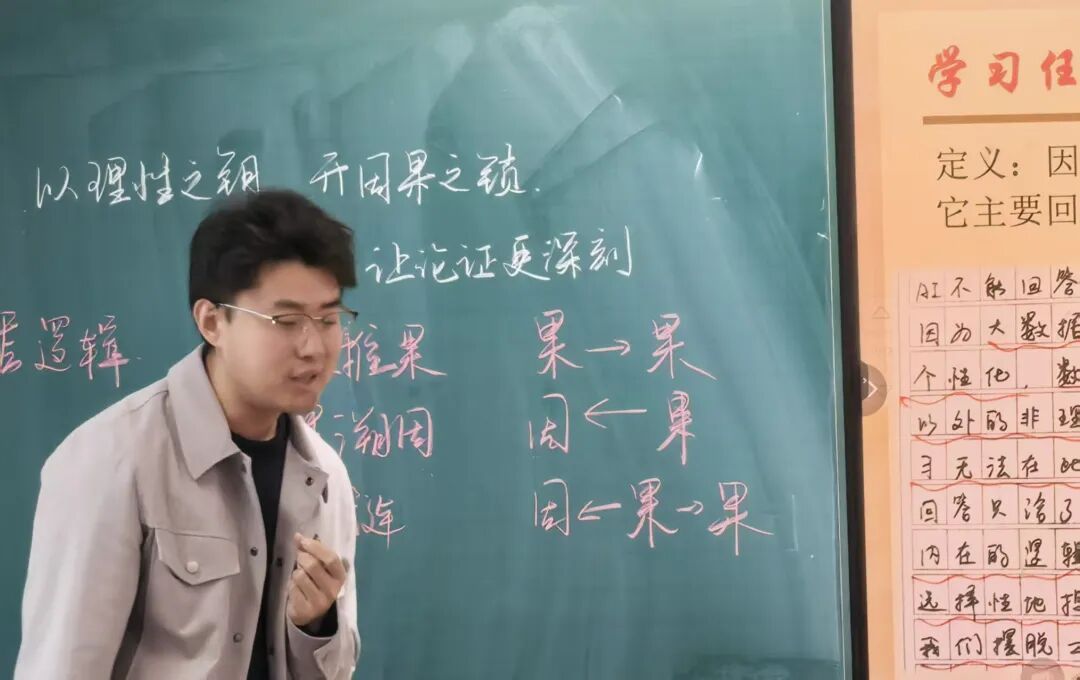 以理性之钥 开因果之锁.
让论证更深刻
逻辑. 推果 果→果
溯因 因←果
连 因←果→果
学习任
定义：因
它主要回
AI不能回答
因为大数据
个性化，数
以外的非理
寻无法在此
回答只治了
内在的逻辑
选择性地提
我们摆脱